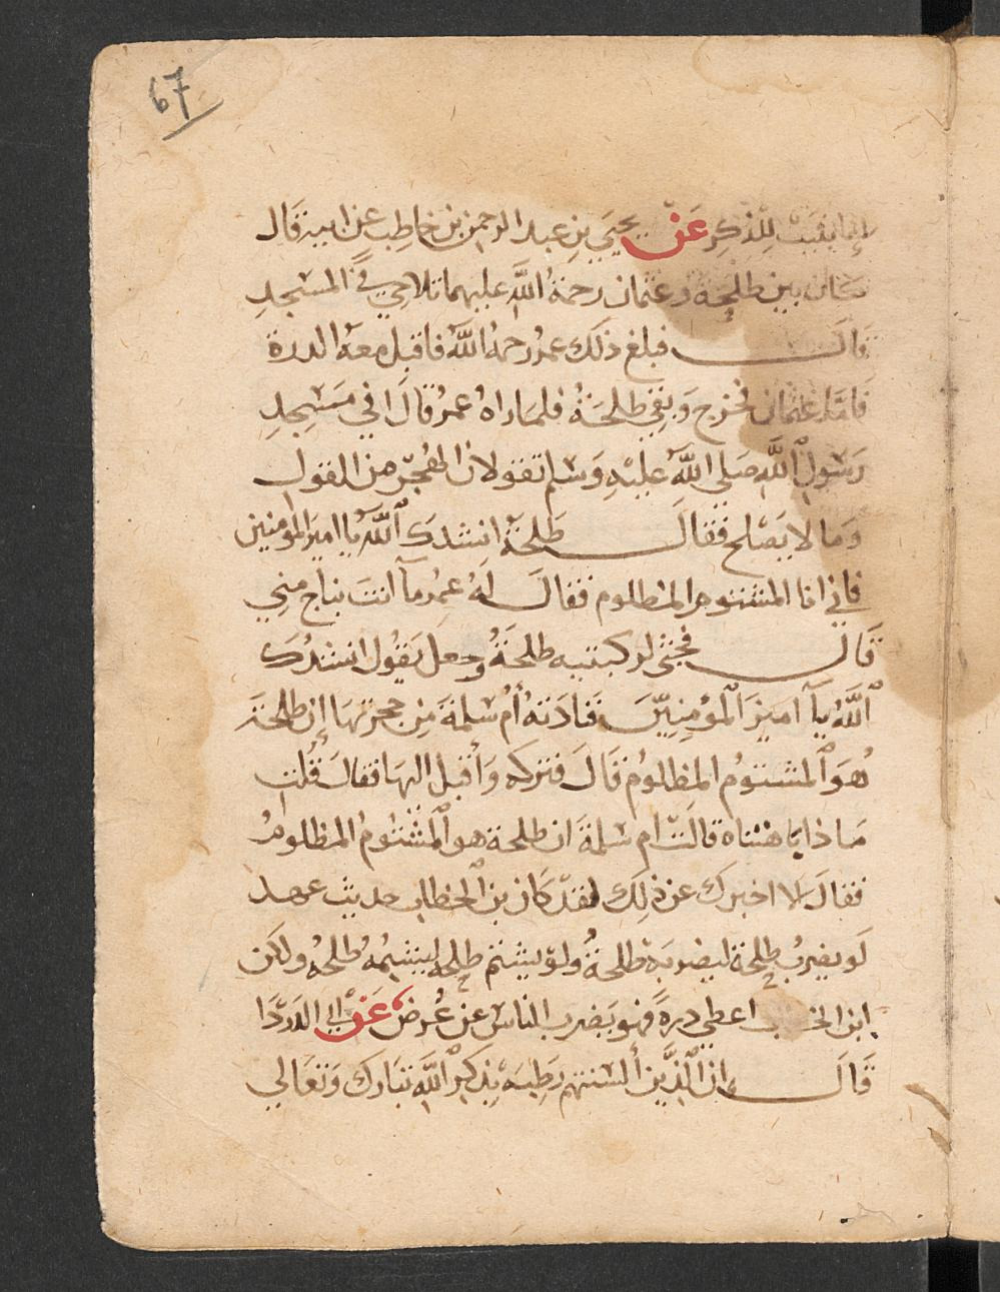 67
إنما بنيت للذكر عن يحيى بن عبد الرحمن بن حاطب عن ابيه قال
كان بين طلحة وعثمان رحمة الله عليهما تلاحي في المسجد
قال فبلغ ذلك عمر رحمه الله فاقبل معه الدرة
فاما عثمان فخرج وبقي طلحة فلما راه عمر قال افي مسجد
رسول الله صلى الله عليه وسلم تقولان الهجر من القول
وما لا يصلح فقال طلحة انشدك الله يا امير المومنين
فاني انا المشتوم المظلوم فقال له عمر ما انت بناج مني
قال فجثى لركبتيه طلحة وجعل يقول انشدك
الله يا امير المؤمنين فنادته أم سلمة من حجرتها إن طلحة
هو المشتوم المظلوم قال فتركه وأقبل اليها فقال قلت
ماذا يا هنتاه قالت ام سلمة ان طلحة هو المشتوم المظلوم
فقال الا اخبرك عن ذلك لقد كان بن الخطاب حديث عهد
لو يضرب طلحة ليضربه طلحة ولو يشتم طلحة ليشتمه طلحة ولكن
ابن الخطاب اعطي درة فهو يضرب الناس عن عرض عن ابي الدردا
قال إن الذين ألسنتهم رطبة بذكر الله تبارك وتعالى